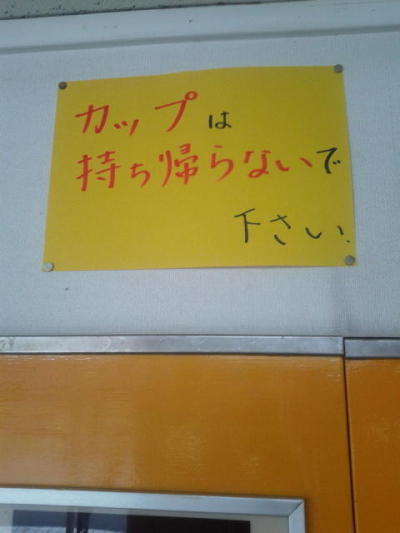 カップは
持ち帰らないで
下さい.